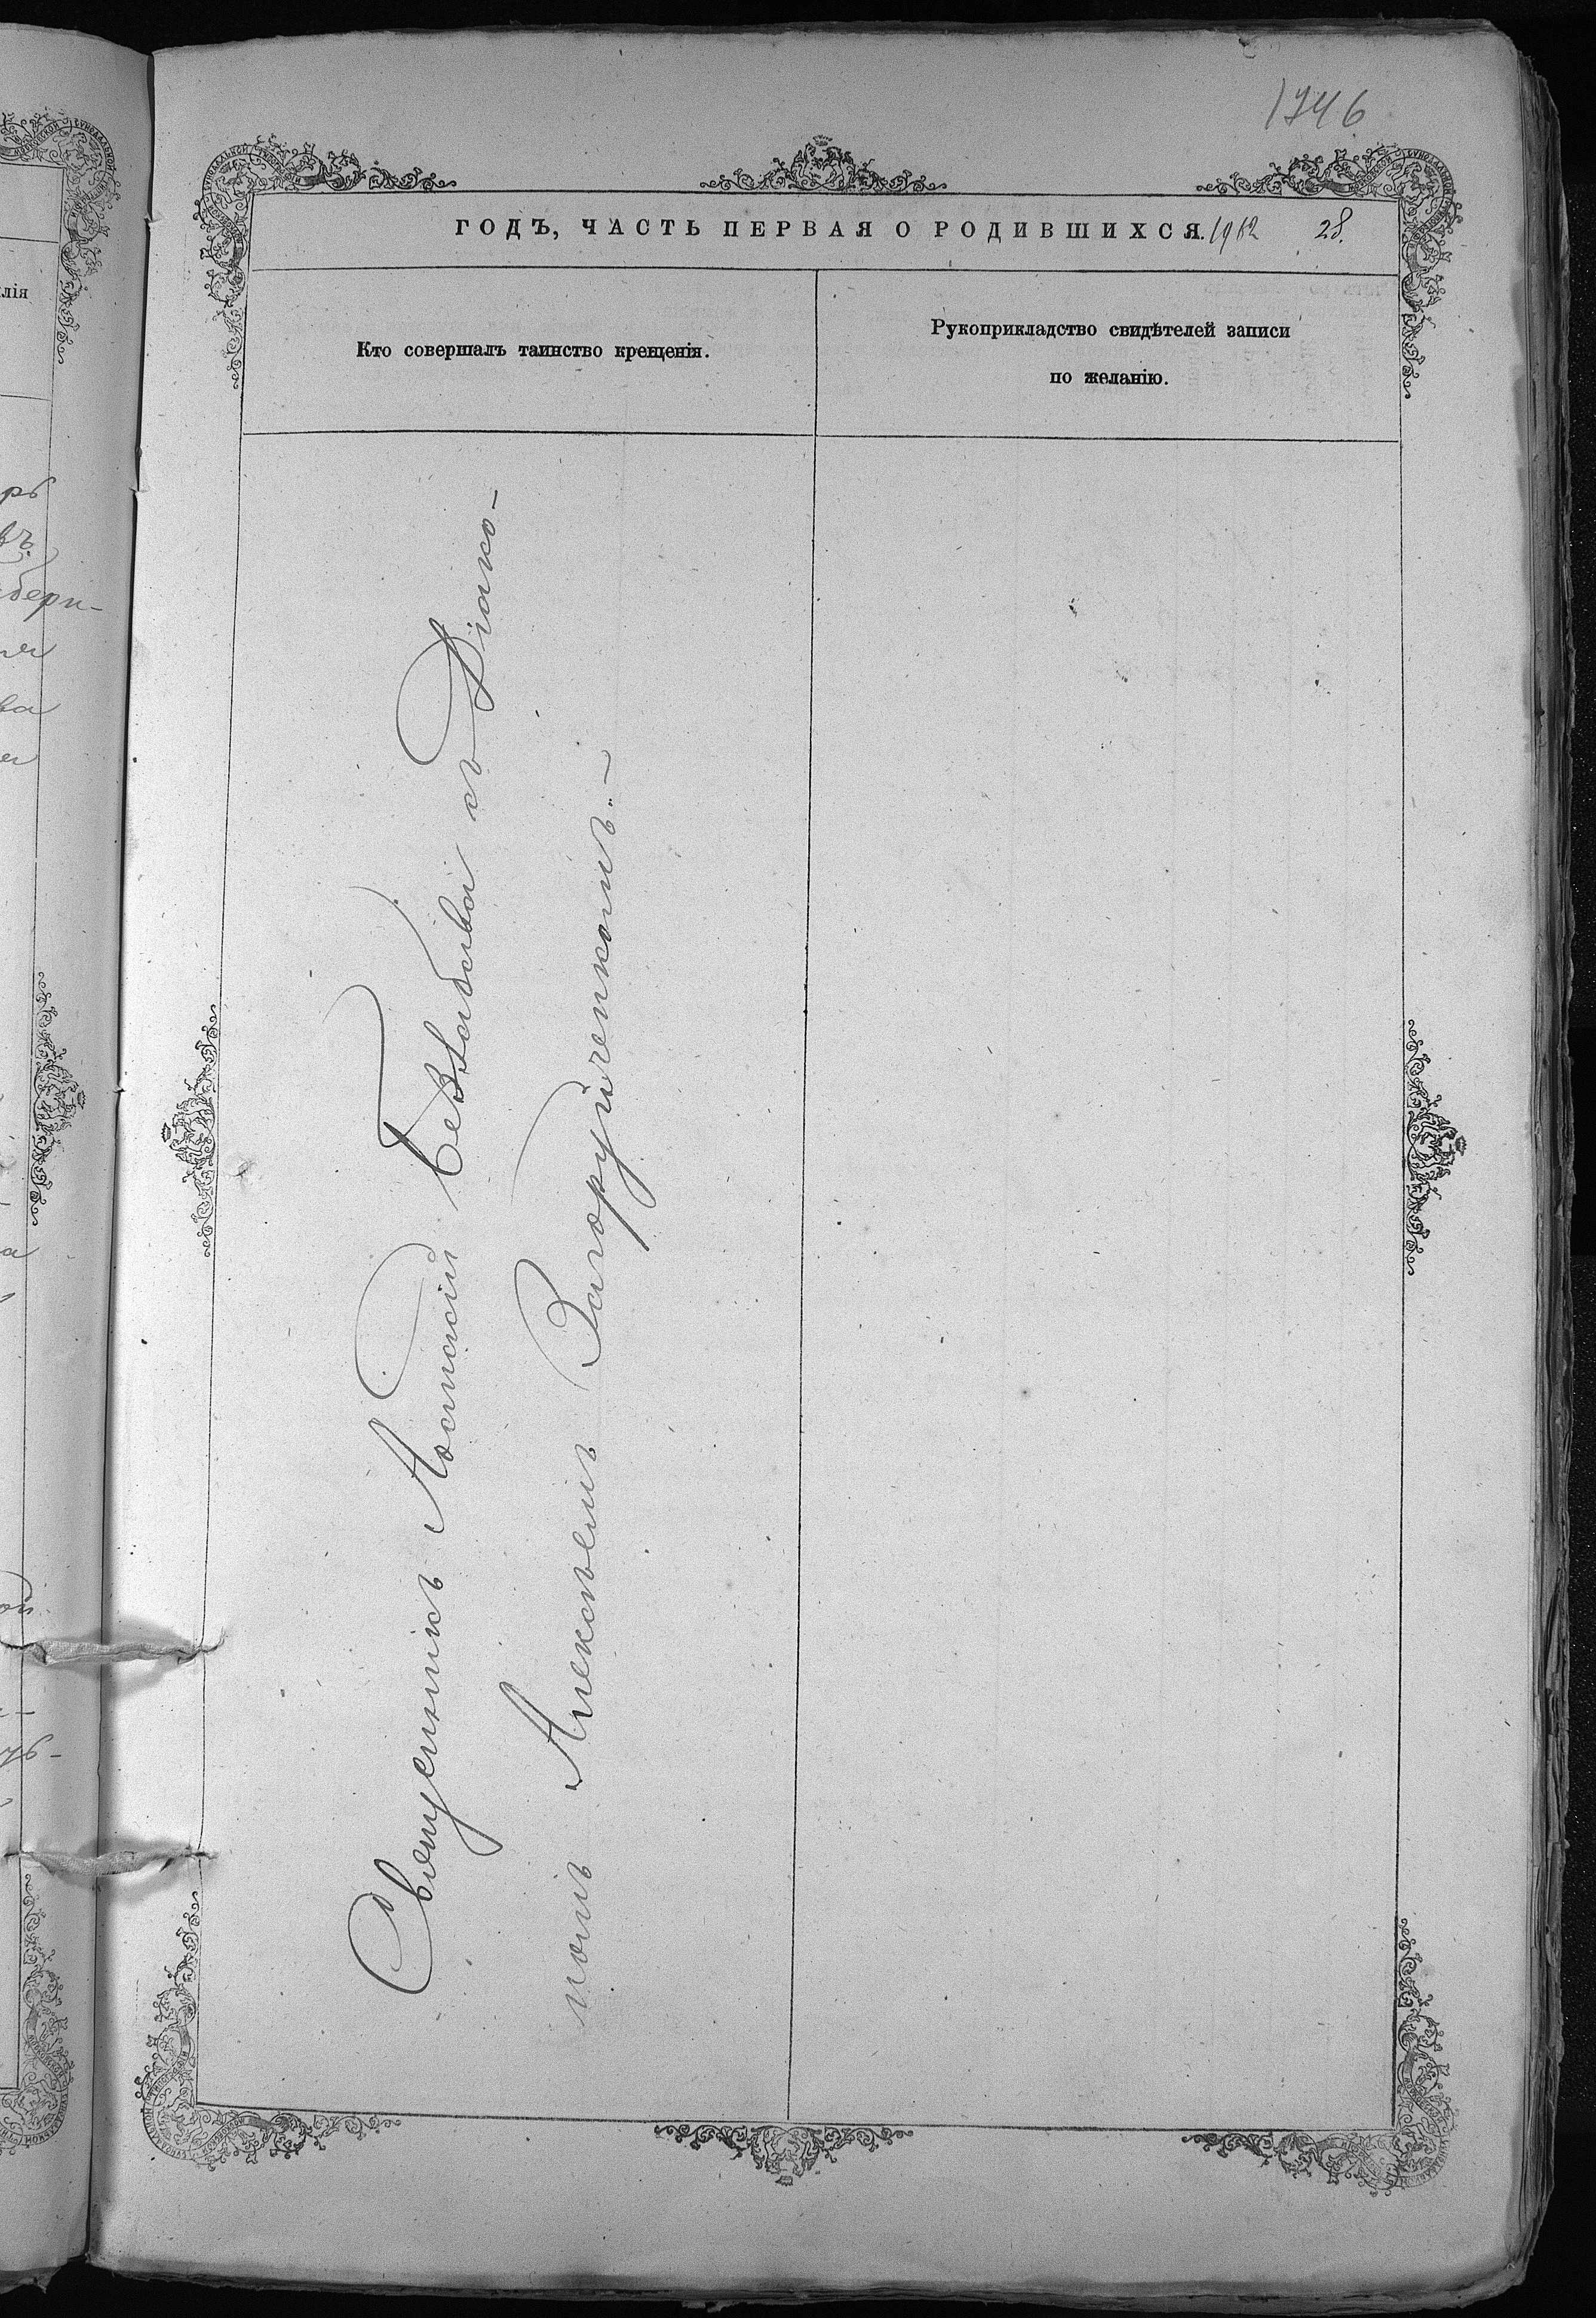 1746
ГОДЪ, ЧАСТЬ ПЕРВАЯ О РОДИВШИХСЯ. 1912 28.
Кто совершалъ таинство крещенія.
Рукоприкладство свидѣтелей записи
по желанію.
Священникъ Діако-
номъ Алексѣемъ Загоруйченкомъ.-